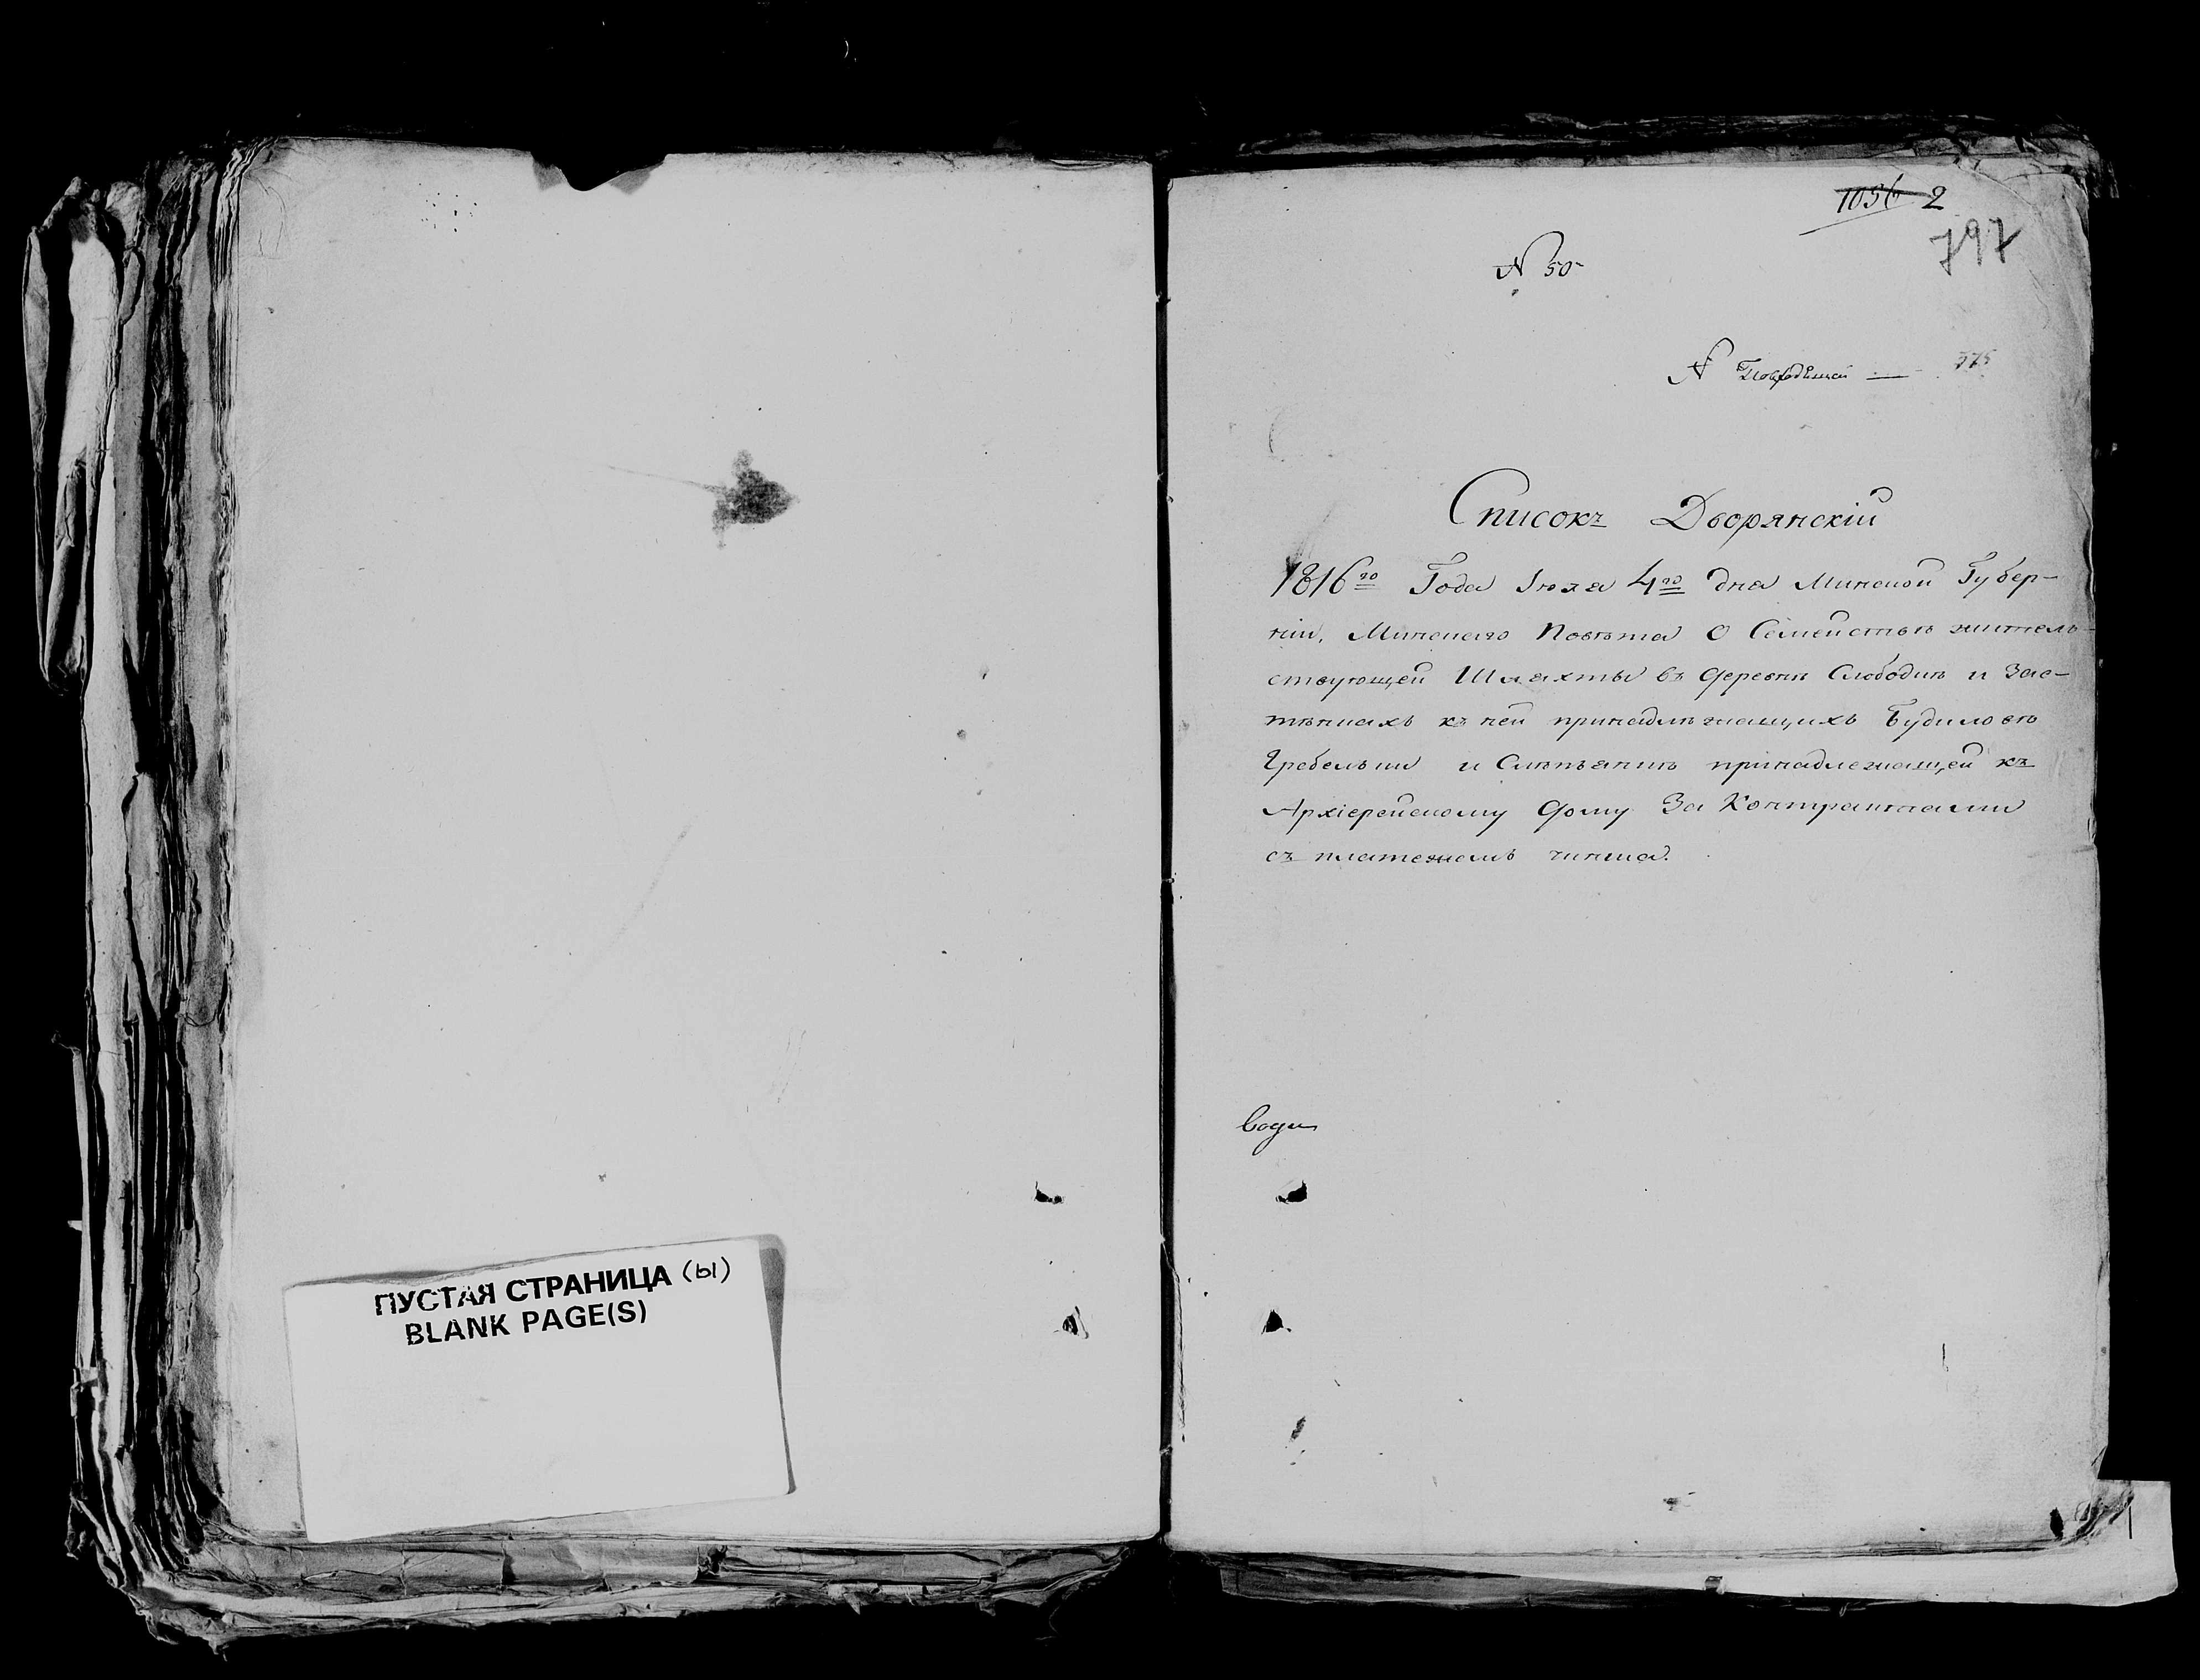 ПУСТАЯ СТРАНИЦА (ы)
BLANK PAGE(S)
1056 2
797
N 50
N 375
Списокъ Дворянскій
1816го Года Іюля 4го дня Минской Губер-
ніи, Минскаго Повѣта О Семействѣ житель-
ствующей Шляхты въ деревнѣ Слободкѣ и Зас-
тѣнкахъ къ ней принадлѣжащихъ Будиловѣ
Гребельки и Слѣпянкѣ принадлежащей къ
Архіерейскому дому За Контрактами
съ платежемъ чинша.
1